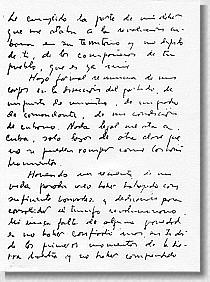 he cumplido la parte de mi deber
que me ataba a la revolución cu-
bana en su territorio y me despido
de ti, de los compañeros, de tu
pueblo, que ya es mío.
Hago formal renuncia de mis
cargos en la Dirección del partido, de
mi puesto de ministro, de mi grado
de comandante, de mi condición
de cubano. Nada legal me ata a
Cuba, solo lazos de otra clase que
no se pueden romper como los nom-
bramientos.
Haciendo un recuento de mi
vida pasada creo haber trabajado con
suficiente honradez y dedicación para
consolidar el triunfo revolucionario.
Mi única falta de alguna gravedad
es no haber confiado más en ti desde
los primeros momentos de la Sie-
rra Maestra y no haber comprendido